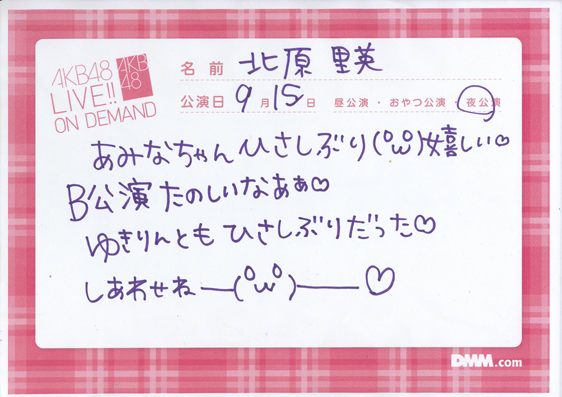 AKB48
LIVE!!
ON DEMAND
AKB
48
名前 北原里英
公演日 9月15日 昼公演・おやつ公演・夜公演
あみなちゃんひさしぶり(°ω°)嬉しい♡
B公演たのしいなあぁ♡
ゆきりんともひさしぶりだった♡
しあわせね―(°ω°)――♡
DMM.com